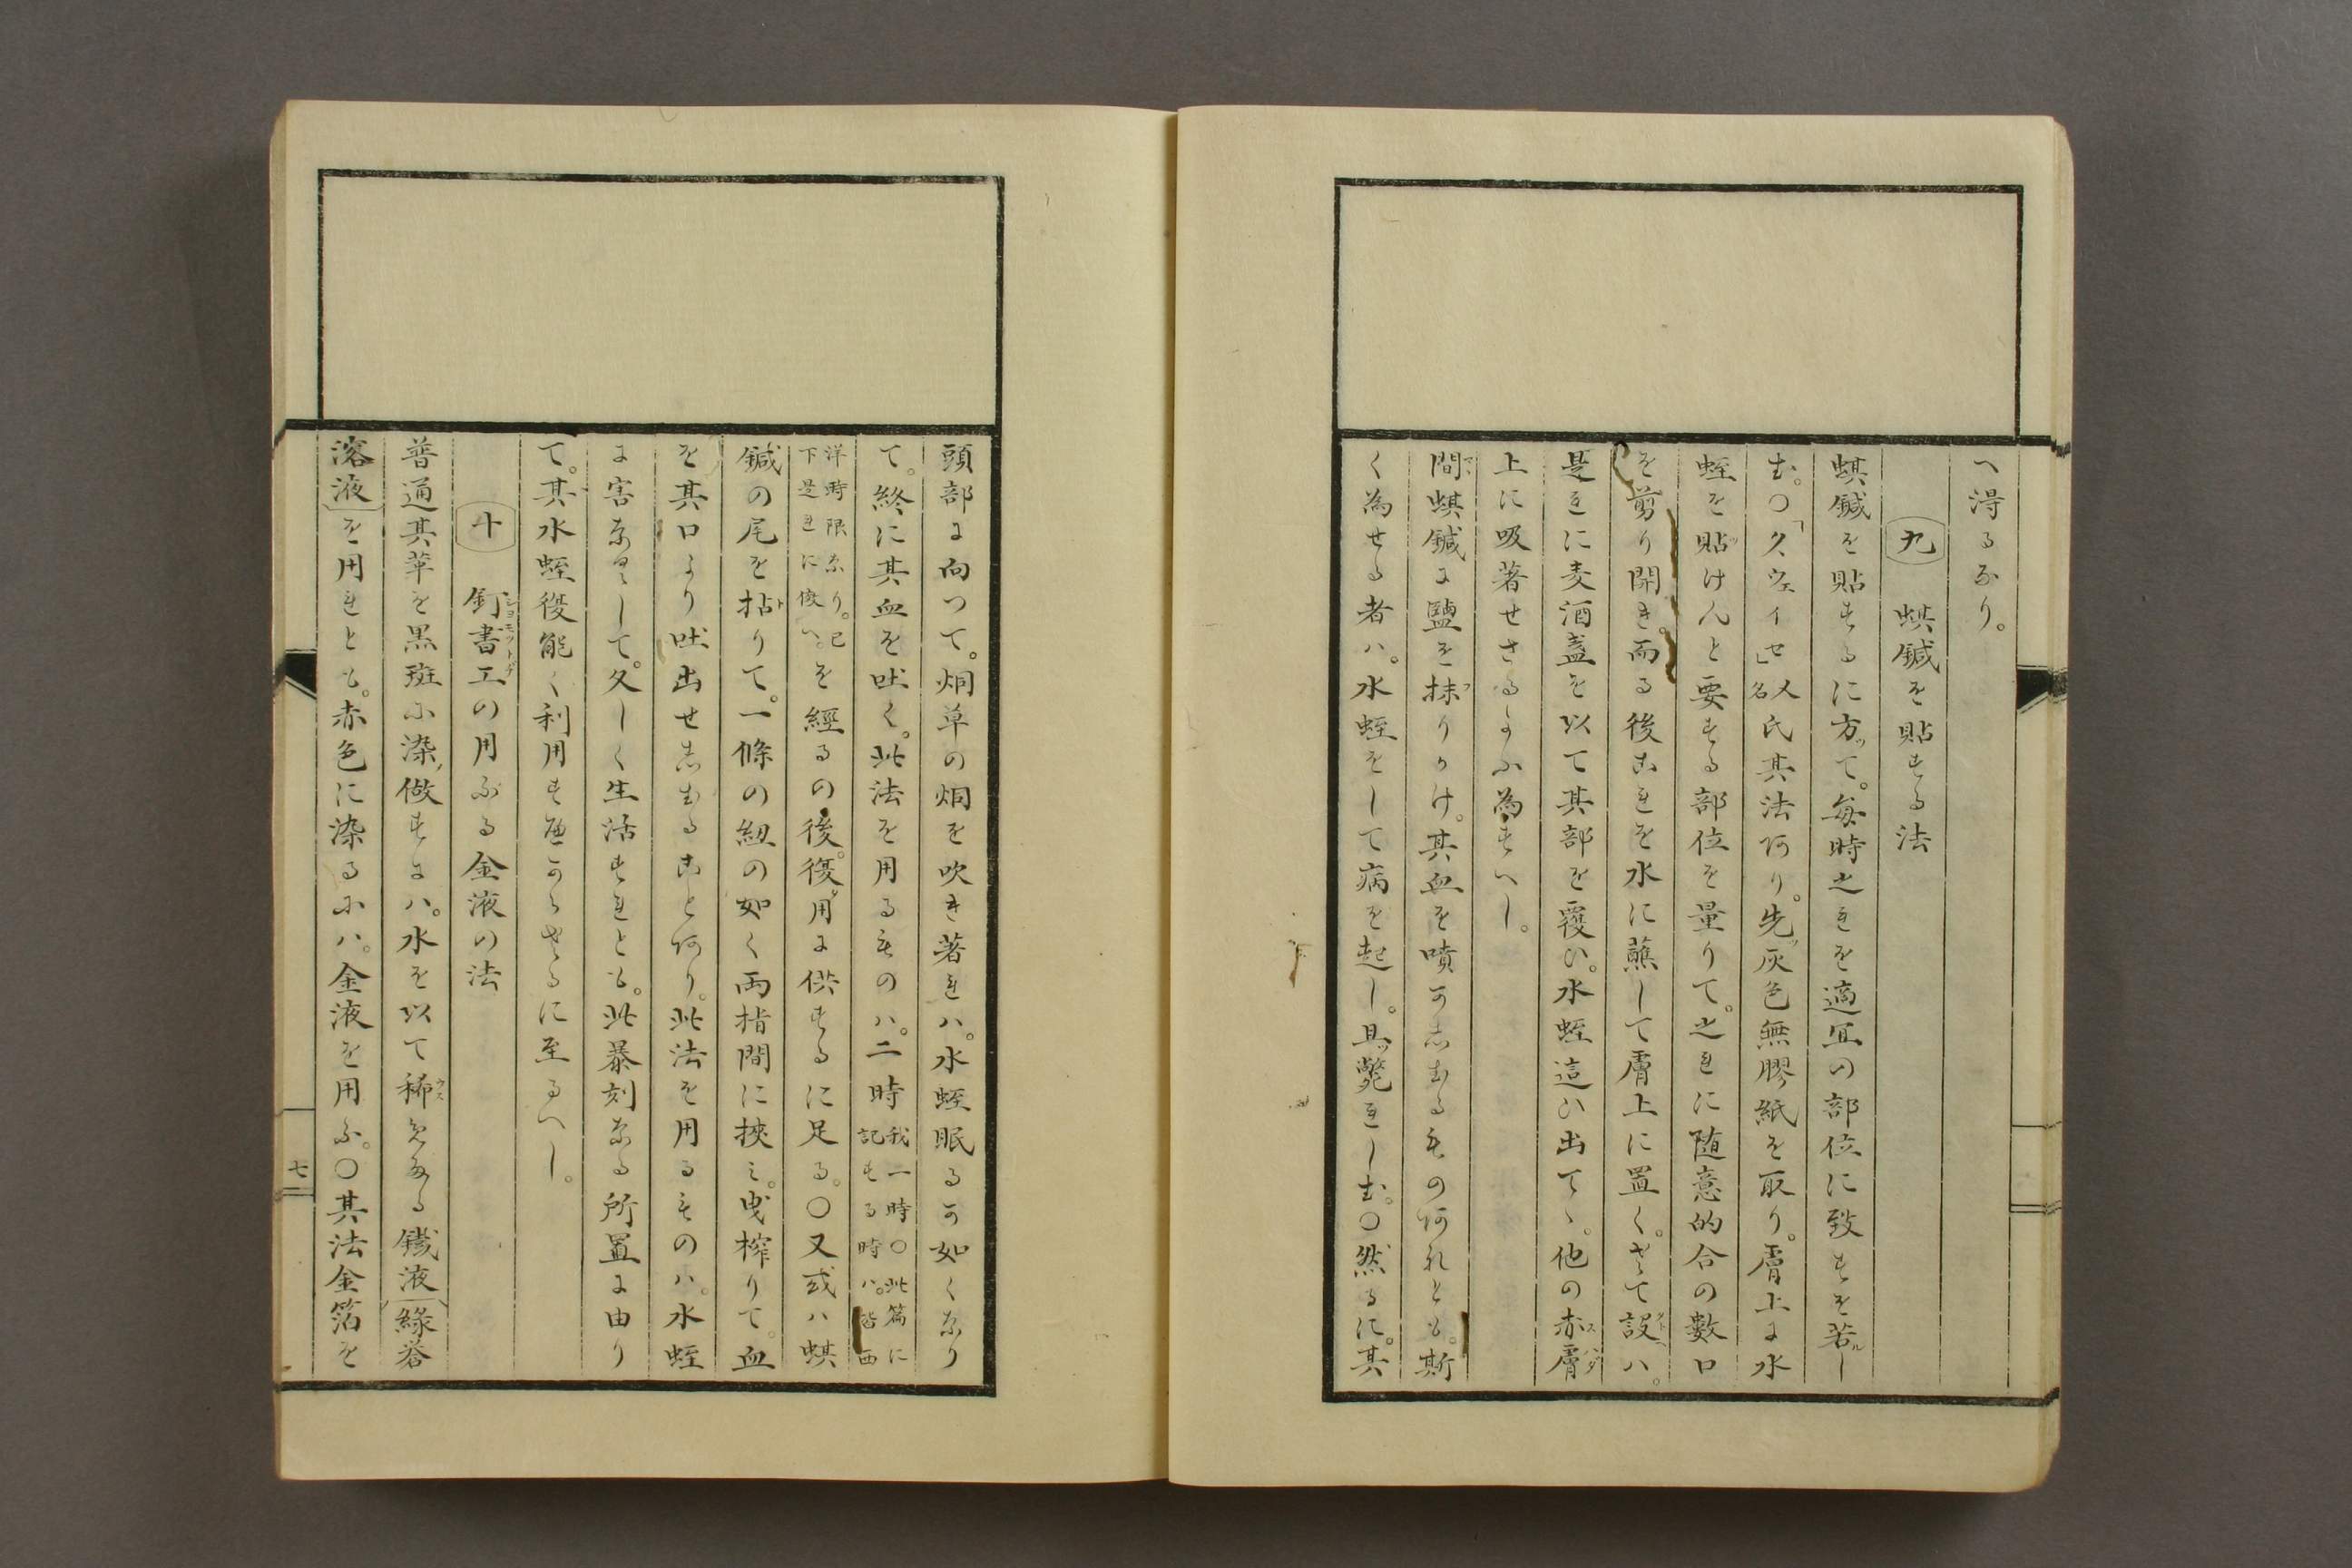 へ得るなり。
九　蜞鍼を貼する法
蜞鍼を貼するに方って。毎時之れを適宜の部位に致すを若し
む。〇「久ウェイセ」人名氏其法あり。先ッ灰色無膠紙を取り。膚上に水
蛭を貼けんと要する部位を量りて。之れに随意的合の數口
を剪り開き。而る後これを水に蘸して膚上に置く。さて設ハ。
是れに麦酒盞を以て其部を覆ひ。水蛭這ひ出てゝ。他の赤膚
上に吸著せさるように為すへし。
間蜞鍼に鹽を抹りかけ。其血を噴かしむるもの有れとも。斯
く為せる者ハ。水蛭をして病を起し。且ッ斃れしむ。〇然るに。其
頭部に向つて。烟草の烟を吹き著れハ。水蛭眠るか如くなり
て。終に其血を吐く。此法を用るものハ。二時我一時〇此篇に記する時ハ。皆西
洋時限なり。已下是れに傚へ。を經るの後。復ヒ用に供するに足る。〇又或ハ蜞
鍼の尾を拈りて。一條の紐の如く両指間に挾み。曳榨りて。血
を其口より吐出せしむること有り。此法を用るものハ。水蛭
に害なくして。久しく生活すれとも。此暴刻なる所置に由り
て。其水蛭役能く利用すへからさるに至るへし。
十　釘書工の用ふる金液の法
普通其革を黒斑に染做すにハ。水を以て稀めたる鐵液(緑礬
溶液)を用れとも。赤色に染るにハ。金液を用ふ。〇其法金箔を
七